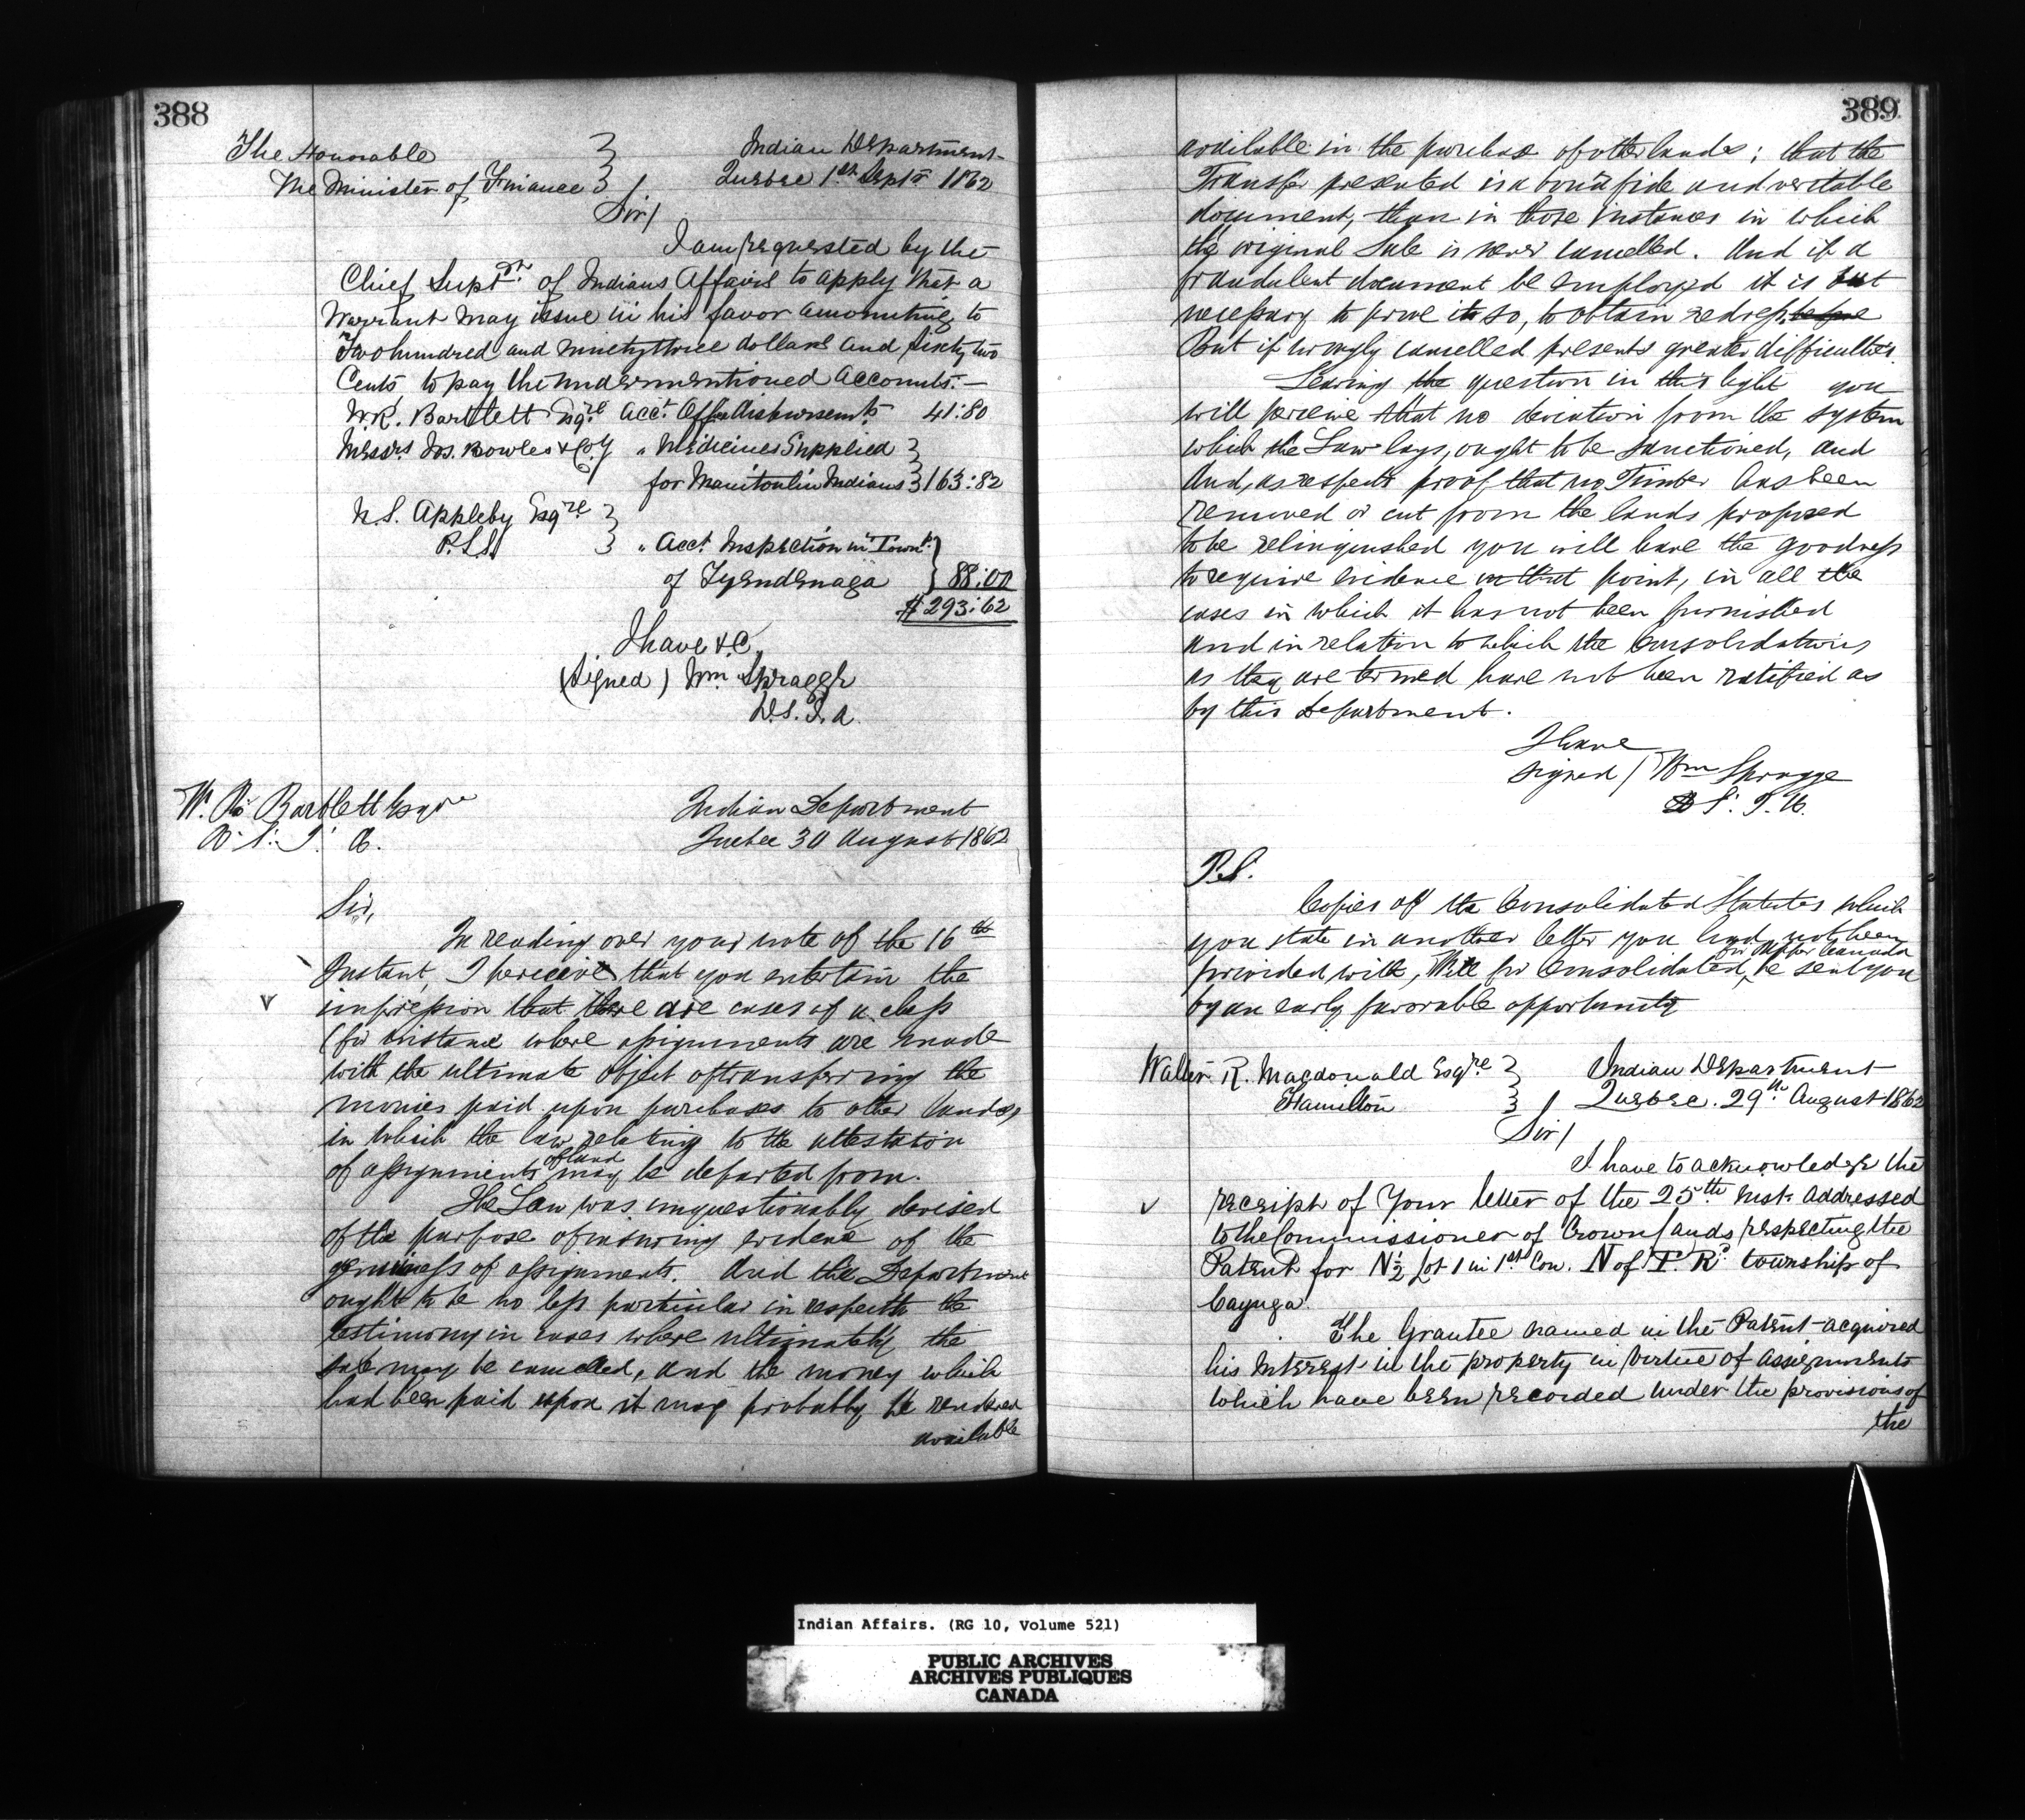 388
The Honorable
The Minister of Finance
Indian Department
Quebec 1st Septr 1862
Sir/
I am requested by the
Chief Supdt of Indians Affairs to apply that a
Warrant may issue in his favor amounting to
Two hundred and ninety three dollars and sixty two
Cents to pay the undermentioned accounts.—
W.R. Bartlett Esqre Acct Office disbursemts 41:80
Messrs Jos. Bowles & Coy " Medicines Supplied
for Manitoulin Indians 163:82
N.S. Appleby Esqre
P.L.S.
" Acct Inspection in Townp
of Tyendenaga 88:00
$293:62
I have &c
(Signed) Wm Spragge
D.S.I.A.
W. R. Bartlett Esqre
Indian Department
Quebec 30 August 1862
Sir,
In reading over your note of the 16th
Instant, I perceive that you entertain the
impression that there are cases of a class
(for instance where assignments are made
with the ultimate object of transferring the
monies paid upon purchases to other lands,
in which the law relating to the attestation
of assignments of land may be departed from.
The Law was unquestionably devised
of the purpose of insuring evidence of the
genuineness of assignments. And the Department
ought to be no less particular in respect to the
testimony in cases where ultimately the
sale may be cancelled, and the money which
had been paid upon it may probably be rendered
available
389
available in the purchase of other lands; that the
Transfer presented is a bona fide and veritable
document, than in those instances in which
the original Sale is never cancelled. And if a
fraudulent document be employed it is but
necessary to prove it so, to obtain redress
But if wrongly cancelled presents greater difficulties.
Seeing the question in this light you
will perceive that no deviation from the system
which the Law lays, ought to be sanctioned, and
And, as respects proof that no Timber has been
removed or cut from the lands proposed
to be relinquished you will have the goodness
to require evidence on that point, in all the
cases in which it has not been furnished
and in relation to which the Consolidations
as they are termed have not been ratified as
by this Department.
I have
signed / Wm Spragge
D S. I. A.
P.S.
Copies of the Consolidated Statutes which
you state in another letter you had not been
provided with, Will for Consolidated, for Upper Canada be sent you
by an early favorable opportunity
Walter R. Macdonald Esqre
Hamilton
Indian Department
Quebec. 29th August 1862
Sir/
I have to acknowledge the
receipt of Your letter of the 25th Inst. addressed
to the Commissioner of Crown Lands respecting the
Patent for N½ Lot 1 in 1st Con. N of T. Rd township of
Cayuga.
The Grantee named in the Patent acquired
his Interest in the property in virtue of assignments
which have been recorded under the provisions of
the
Indian Affairs. (RG 10, Volume 521)
PUBLIC ARCHIVES
ARCHIVES PUBLIQUES
CANADA